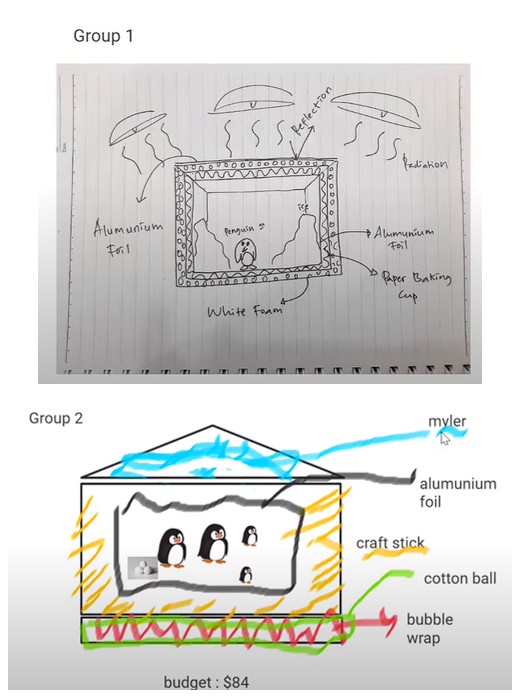 Group 1
Reflection
Radiation
Alumunium
Foil
Penguin
ice
Alumunium
Foil
Paper Baking
Cup
White Foam
Group 2
myler
alumunium
foil
craft stick
cotton ball
bubble
wrap
budget : $84